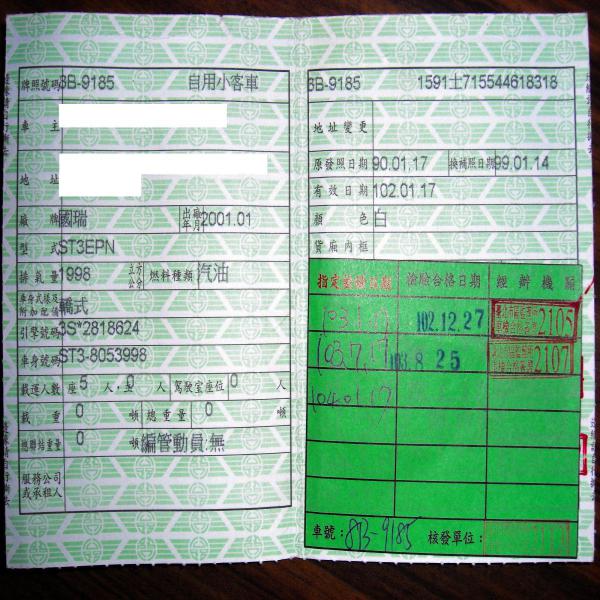 牌照號碼 3B-9185 自用小客車
車主
地址
廠牌 國瑞 出廠年月 2001.01
型式 ST3EPN
排氣量 1998 立方公分 燃料種類 汽油
車身式樣及附加配備 轎式
引擎號碼 3S*2818624
車身號碼 ST3-8053998
載運人數 座 5 人, 立 0 人 駕駛室座位 0 人
載重 0 噸 總重量 0 噸
總聯結重量 0 噸 編管動員:無
服務公司或承租人
3B-9185 1591士715544618318
地址變更
原發照日期 90.01.17 換補照日期 99.01.14
有效日期 102.01.17
顏色 白
貨廂內框
指定檢驗日期 檢驗合格日期 經辦機關
103.1.17 102.12.27 2105
103.7.17 103.8 25 2107
104.01.17
車號: 8B-9185 核發單位: